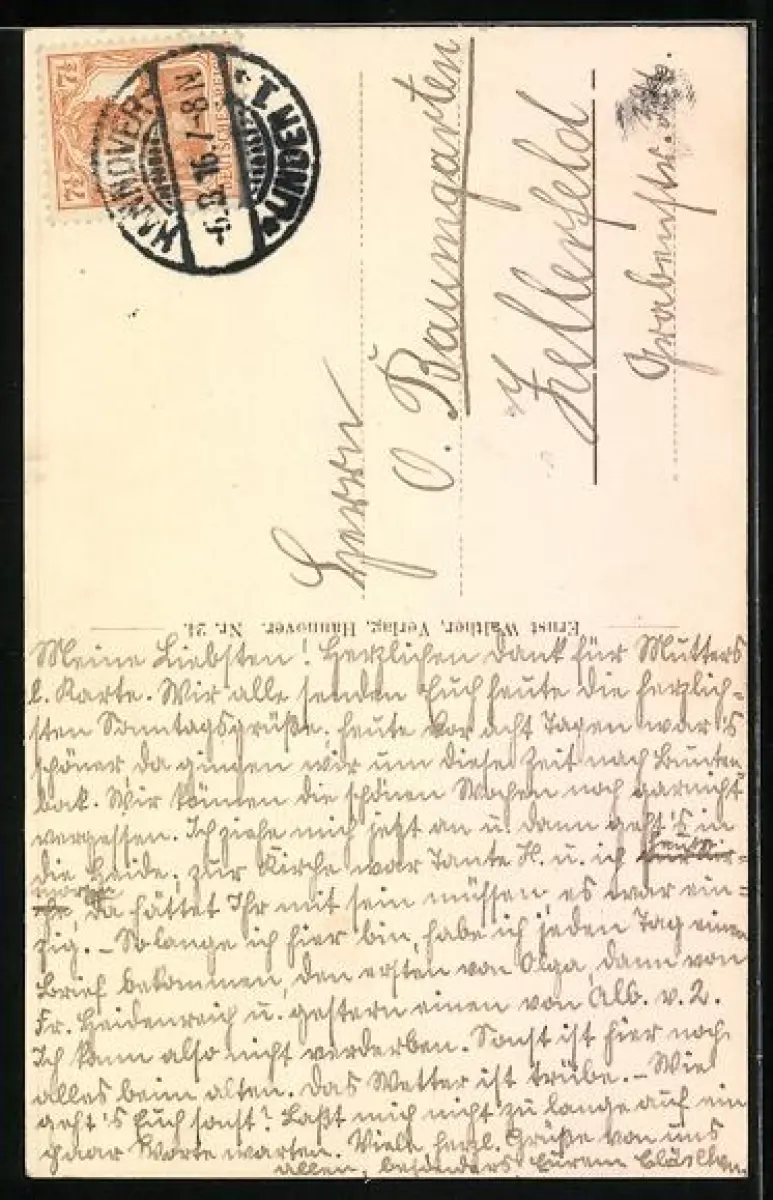 7½
7½
DEUTSCHES REICH
HANNOVER
-6.8.16. 7-8N
LINDEN 1
Herrn
O. Baumgarten
Zellerfeld
Grabenstr.
Ernst Walther, Verlag, Hannover. Nr. 21.
Meine Liebsten! Herzlichen Dank für Mutters
l. Karte. Wir alle senden Euch heute die herzlich-
sten Sonntagsgrüße. Heute vor acht Tagen war's
schöner da gingen wir um diese Zeit nach Bunten-
bok. Wir können die schönen Wochen noch garnicht
vergessen. Ich ziehe mich jetzt an u. dann geht's in
die Heide; zur Kirche war Tante H. u. ich heute
morgen, da hättet Ihr mit sein müssen, es war ein-
zig. – Solange ich hier bin, habe ich jeden Tag einen
Brief bekommen, den ersten von Olga, dann von
Fr. Heidenreich u. gestern einen von Alb. v. Z.
Ich kann also nicht verderben. Sonst ist hier noch
alles beim alten. Das Wetter ist trübe. – Wie
geht's Euch sonst? Laßt mich nicht zu lange auf ein
paar Worte warten. Viele herzl. Grüße von uns
allen, besonders Eurem